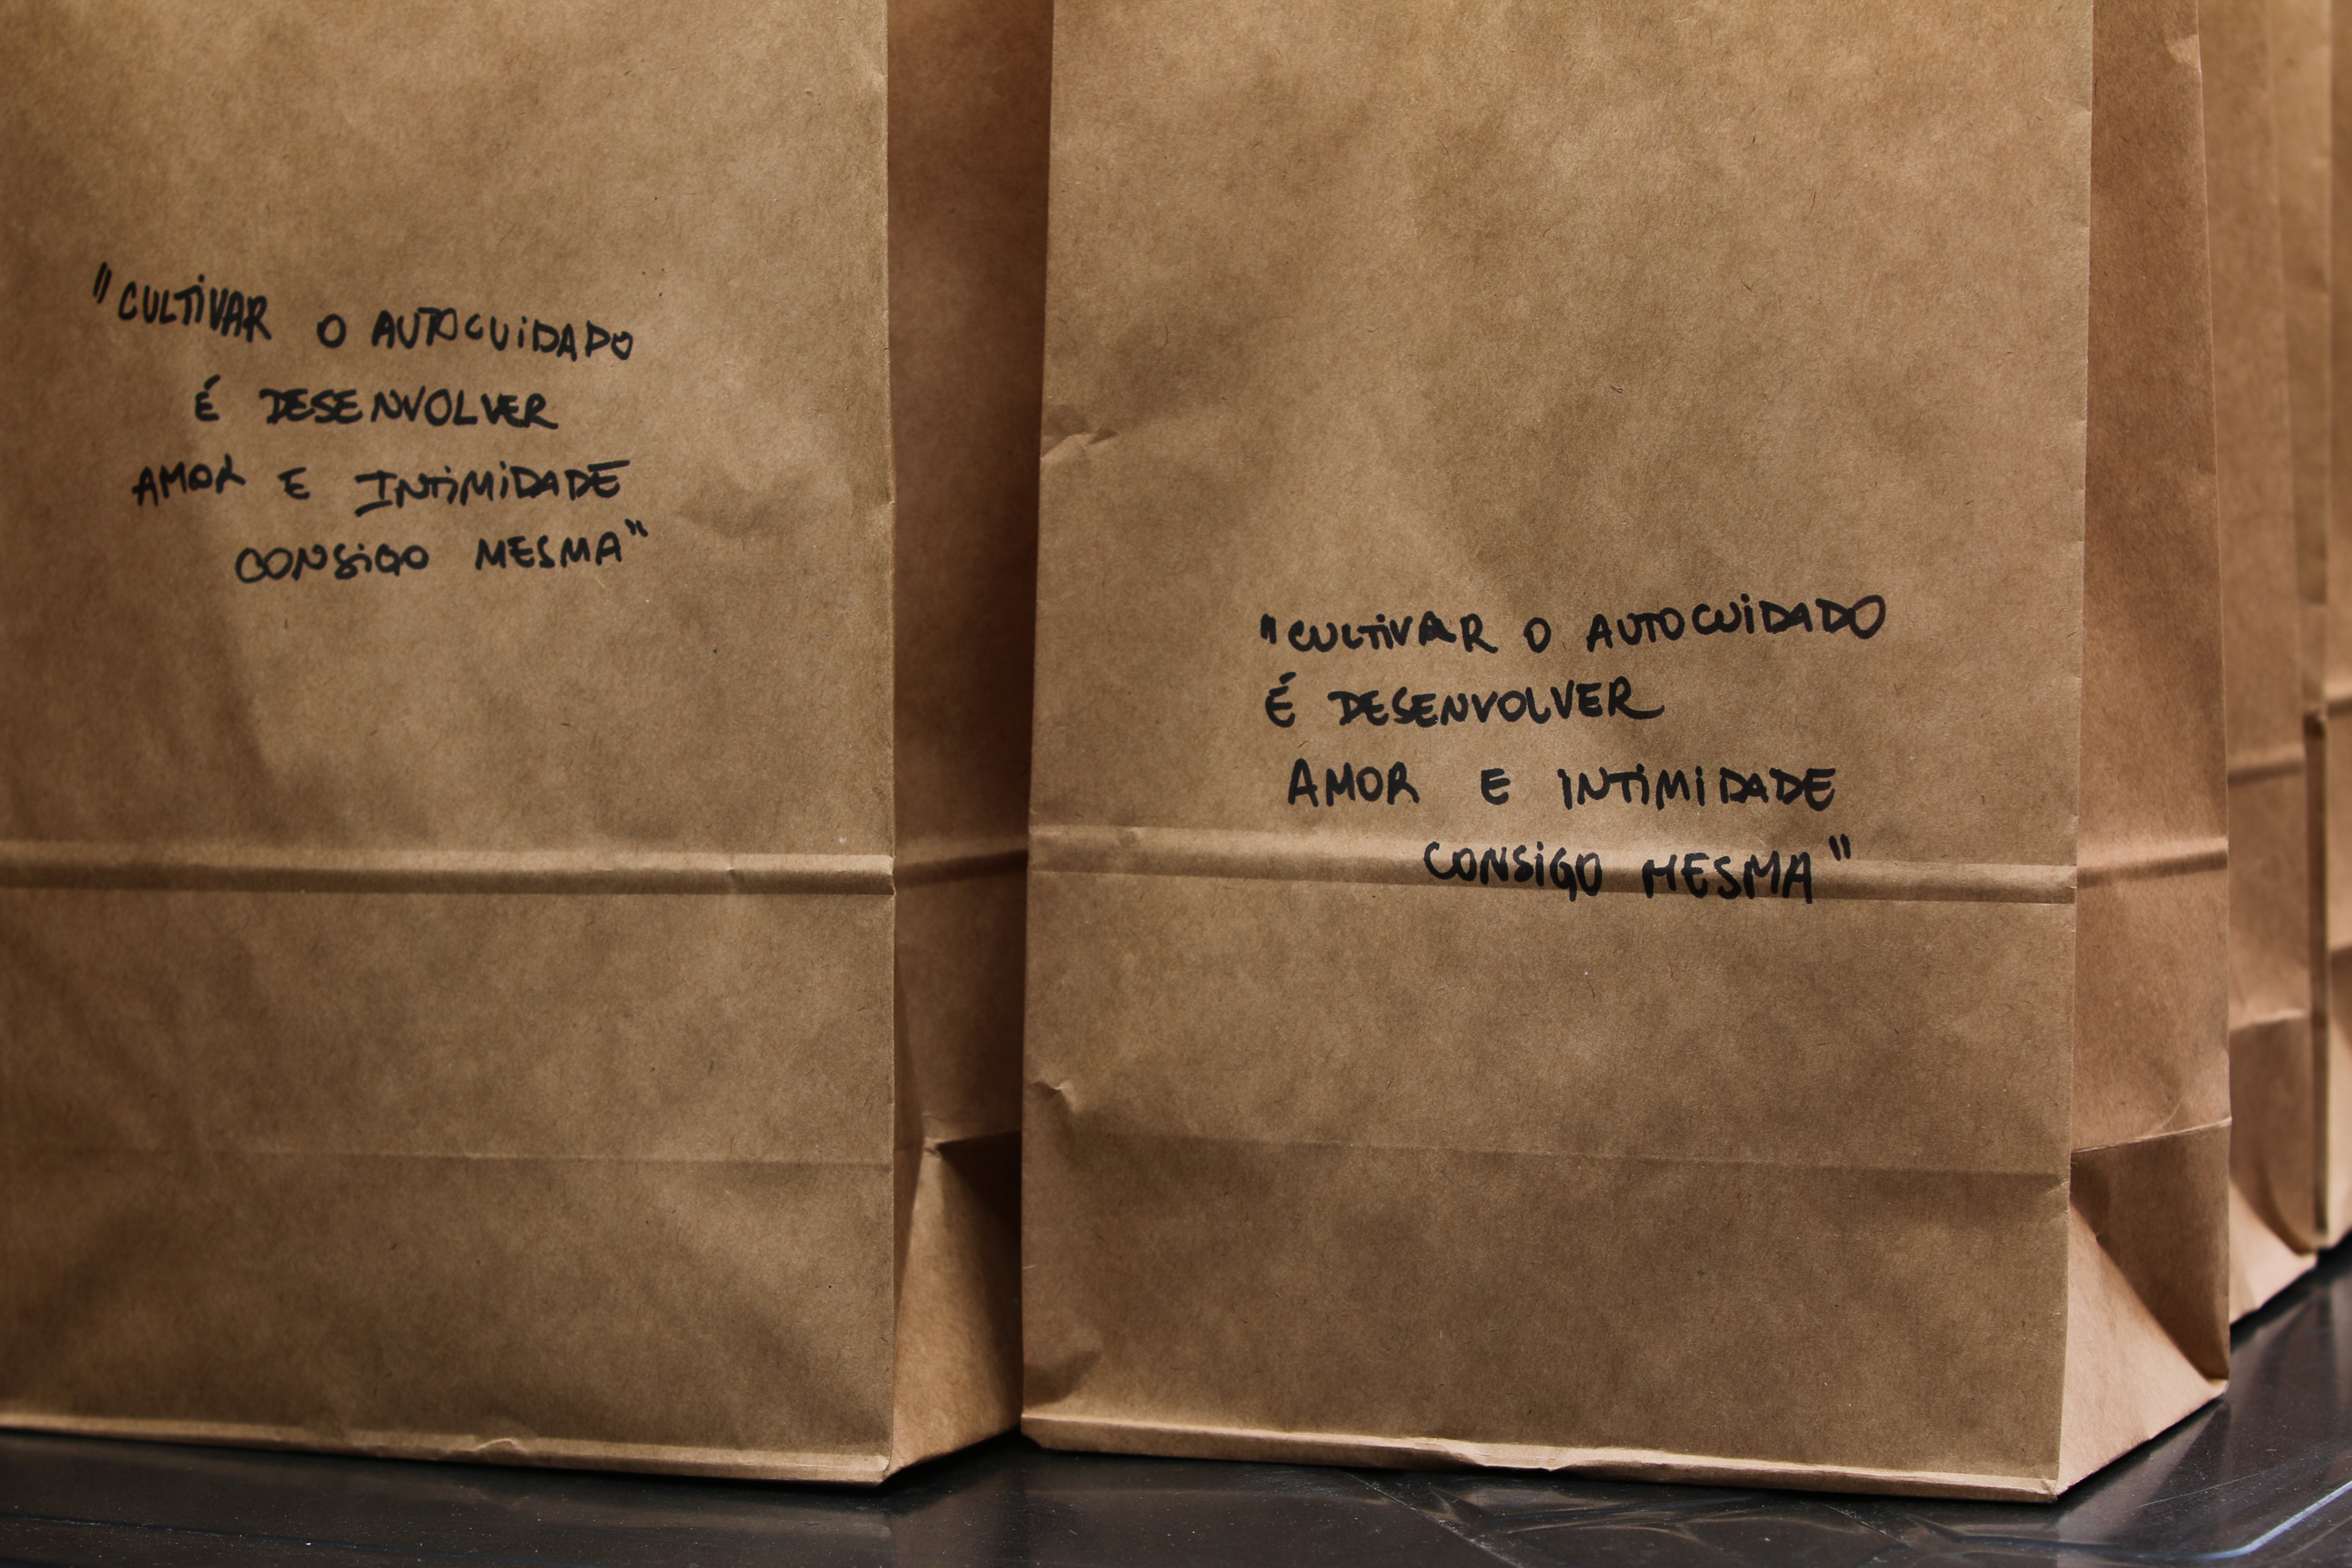 "CULTIVAR O AUTOCUIDADO
É DESENVOLVER
AMOR E INTIMIDADE
CONSIGO MESMA"
"CULTIVAR O AUTOCUIDADO
É DESENVOLVER
AMOR E INTIMIDADE
CONSIGO MESMA"